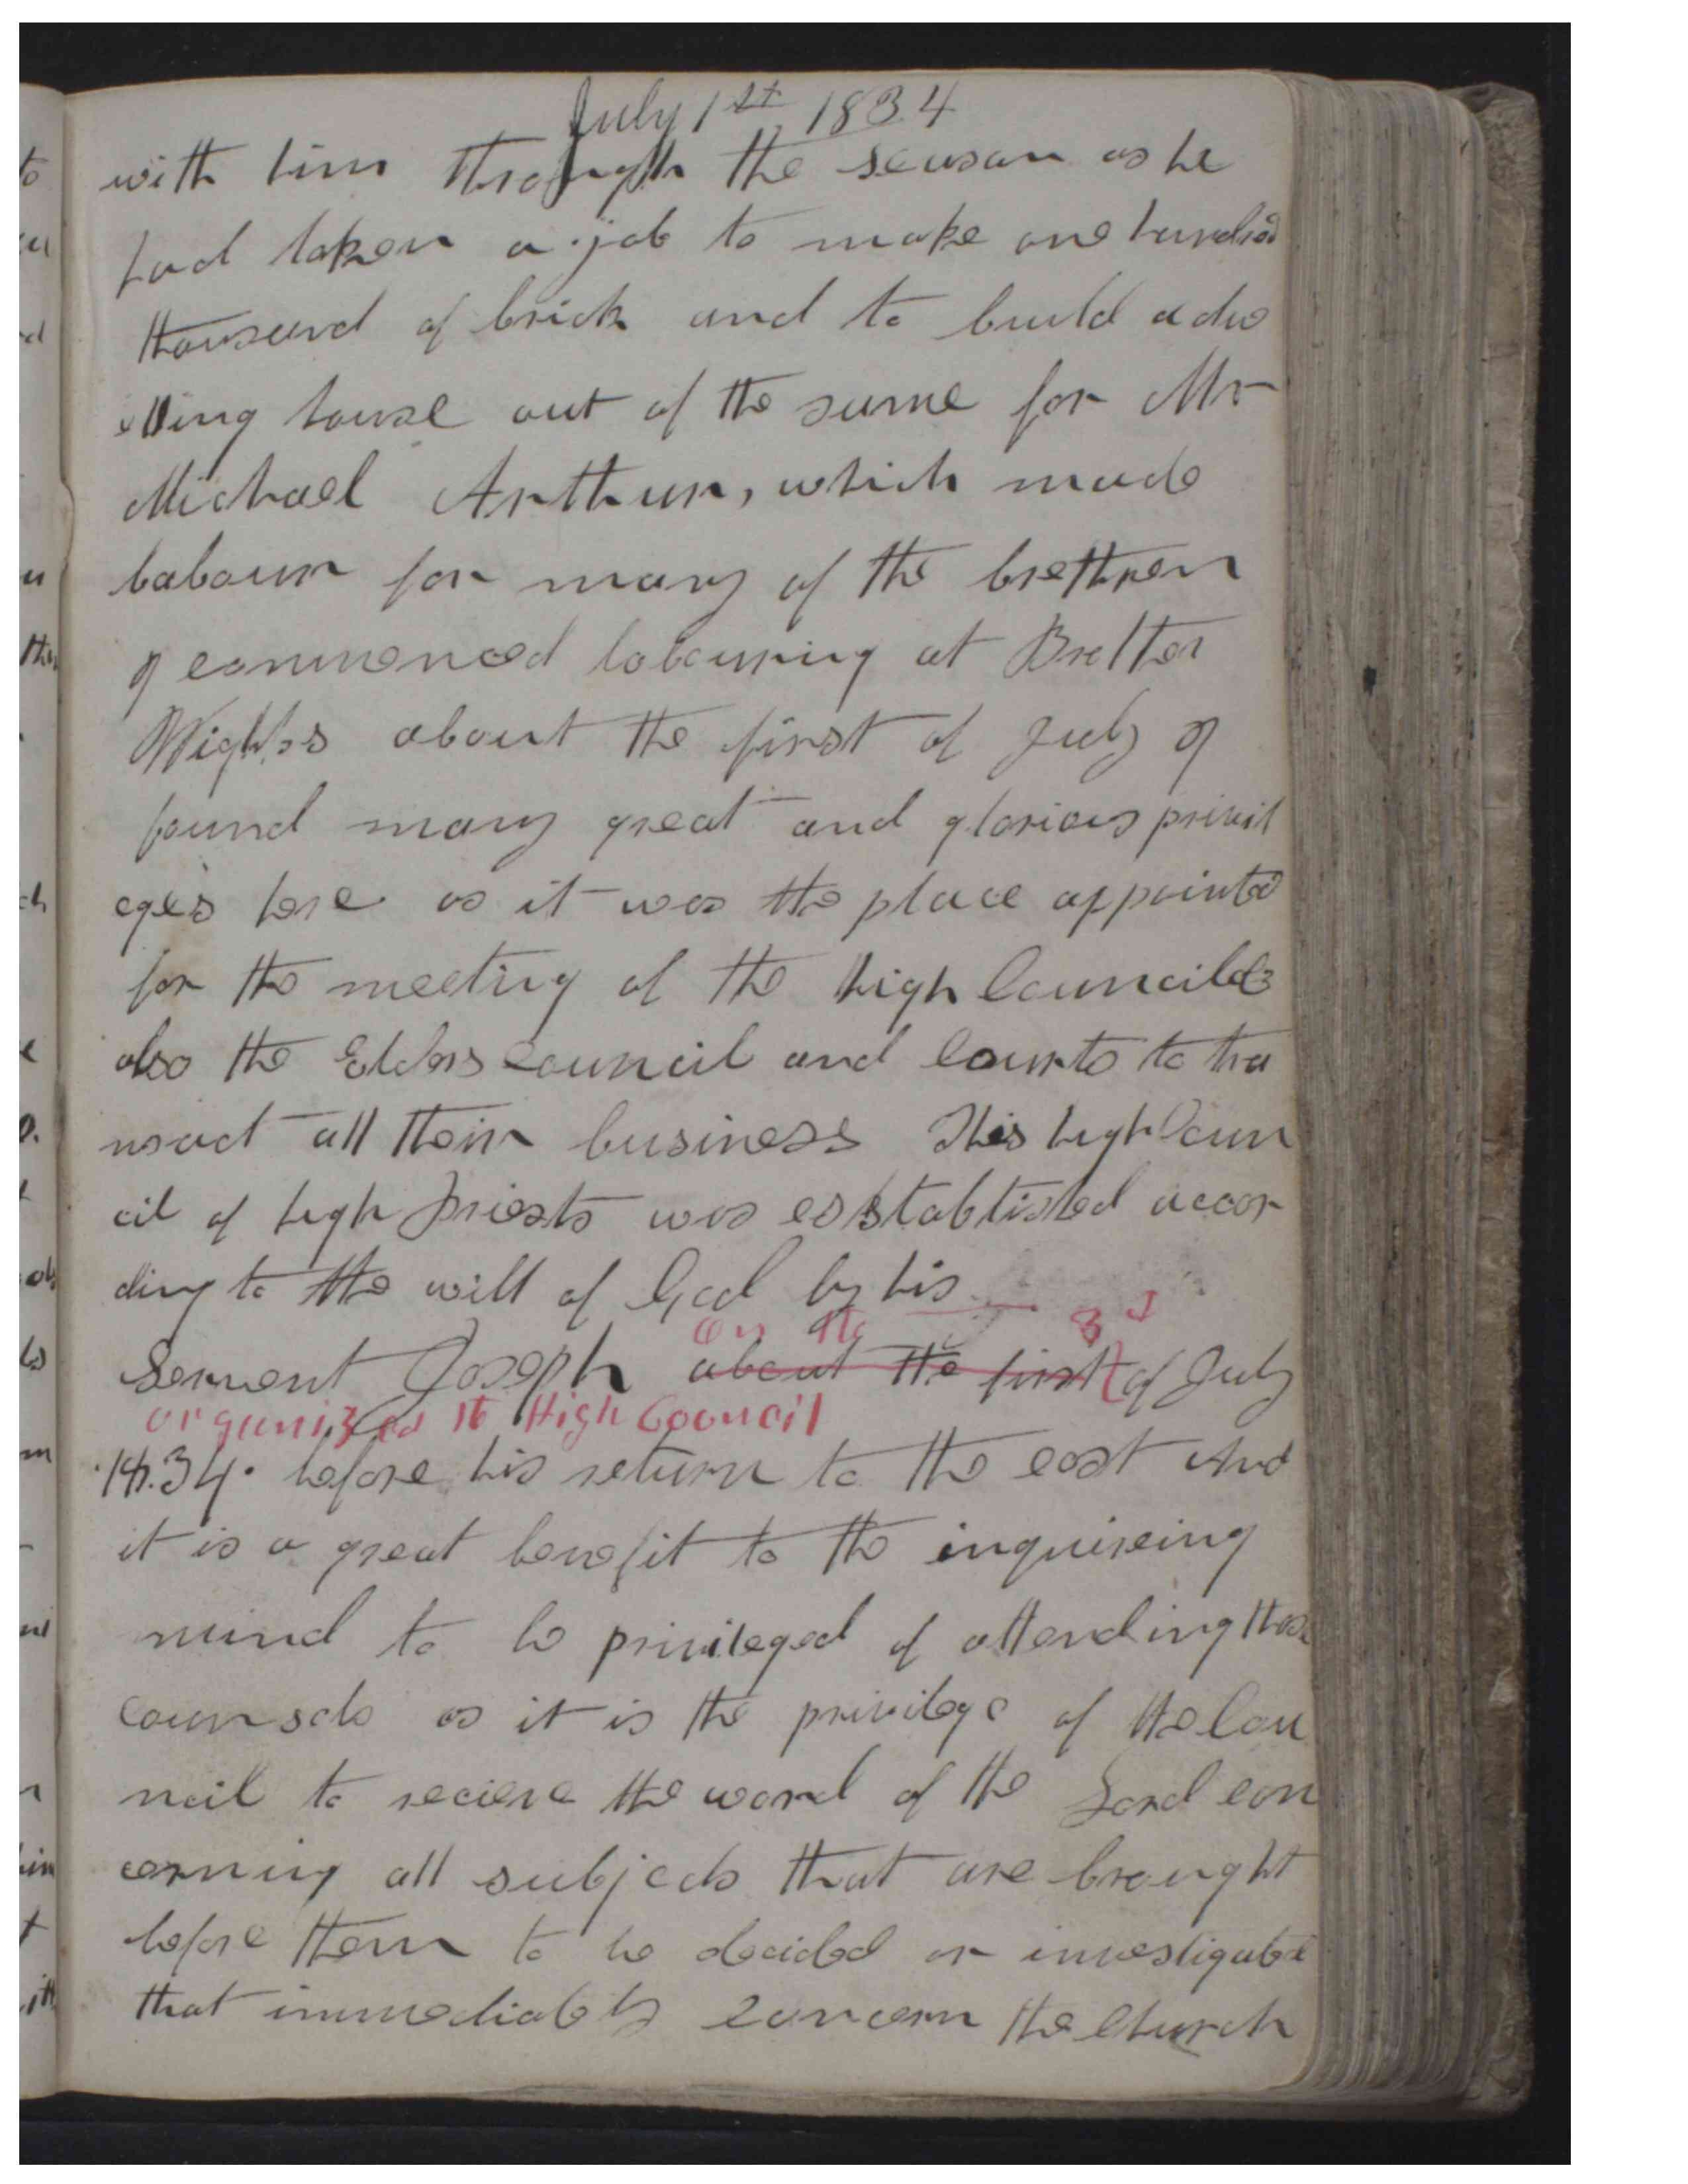 July 1st 1834
with him through the season as he
had taken a job to make one hundred
thousand of brick and to build a dwe
elling house out of the same for Mr
Michael Arthur, which made
labour for many of the brethren
I commenced labouring at Brother
Wights about the first of July I
found many great and glorious privil
eges here as it was the place appointed
for the meeting of the high Councils
also the Elders council and courts to tra
nsact all their business This high Coun
cil of high Priests was esstablished accor
ding to the will of God by his
on the 3d
Servent Joseph about the first of July
organized the High Council
1834. before his return to the east And
it is a great benefit to the inquireing
mind to be privileged of attending those
counsels as it is the privilege of the Cou
ncil to recieve the word of the Lord con
cerning all subjects that are brought
before them to be decided or investigated
that immediately concern the church